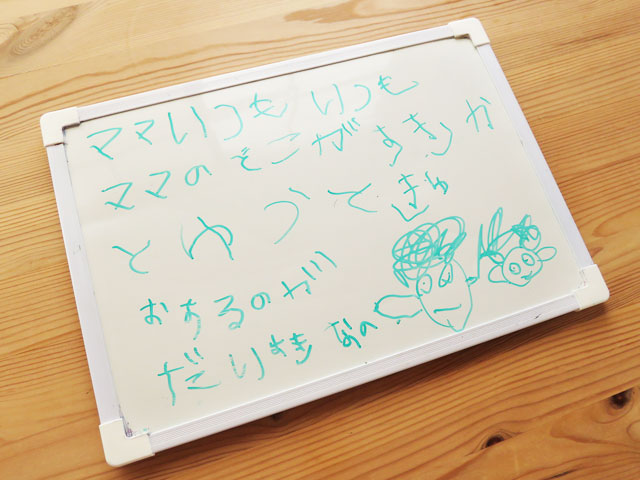 ママいつもいつも
ママのどこがすきか
とゆうてきゅ
おするのが
だいすきなの